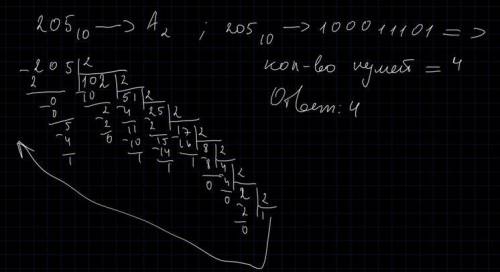 205₁₀ → A₂ ; 205₁₀ → 100011101 =>
кол-во нулей = 4
Ответ: 4
-205|2
2 102|2
-0 10 51|2
0 -2 -4 25|2
5 2 11 -2 17|2
-4 0 -10 15 -16 8|2
1 1 -14 1 -8 4|2
1 0 -4 2|2
0 -2 1
0